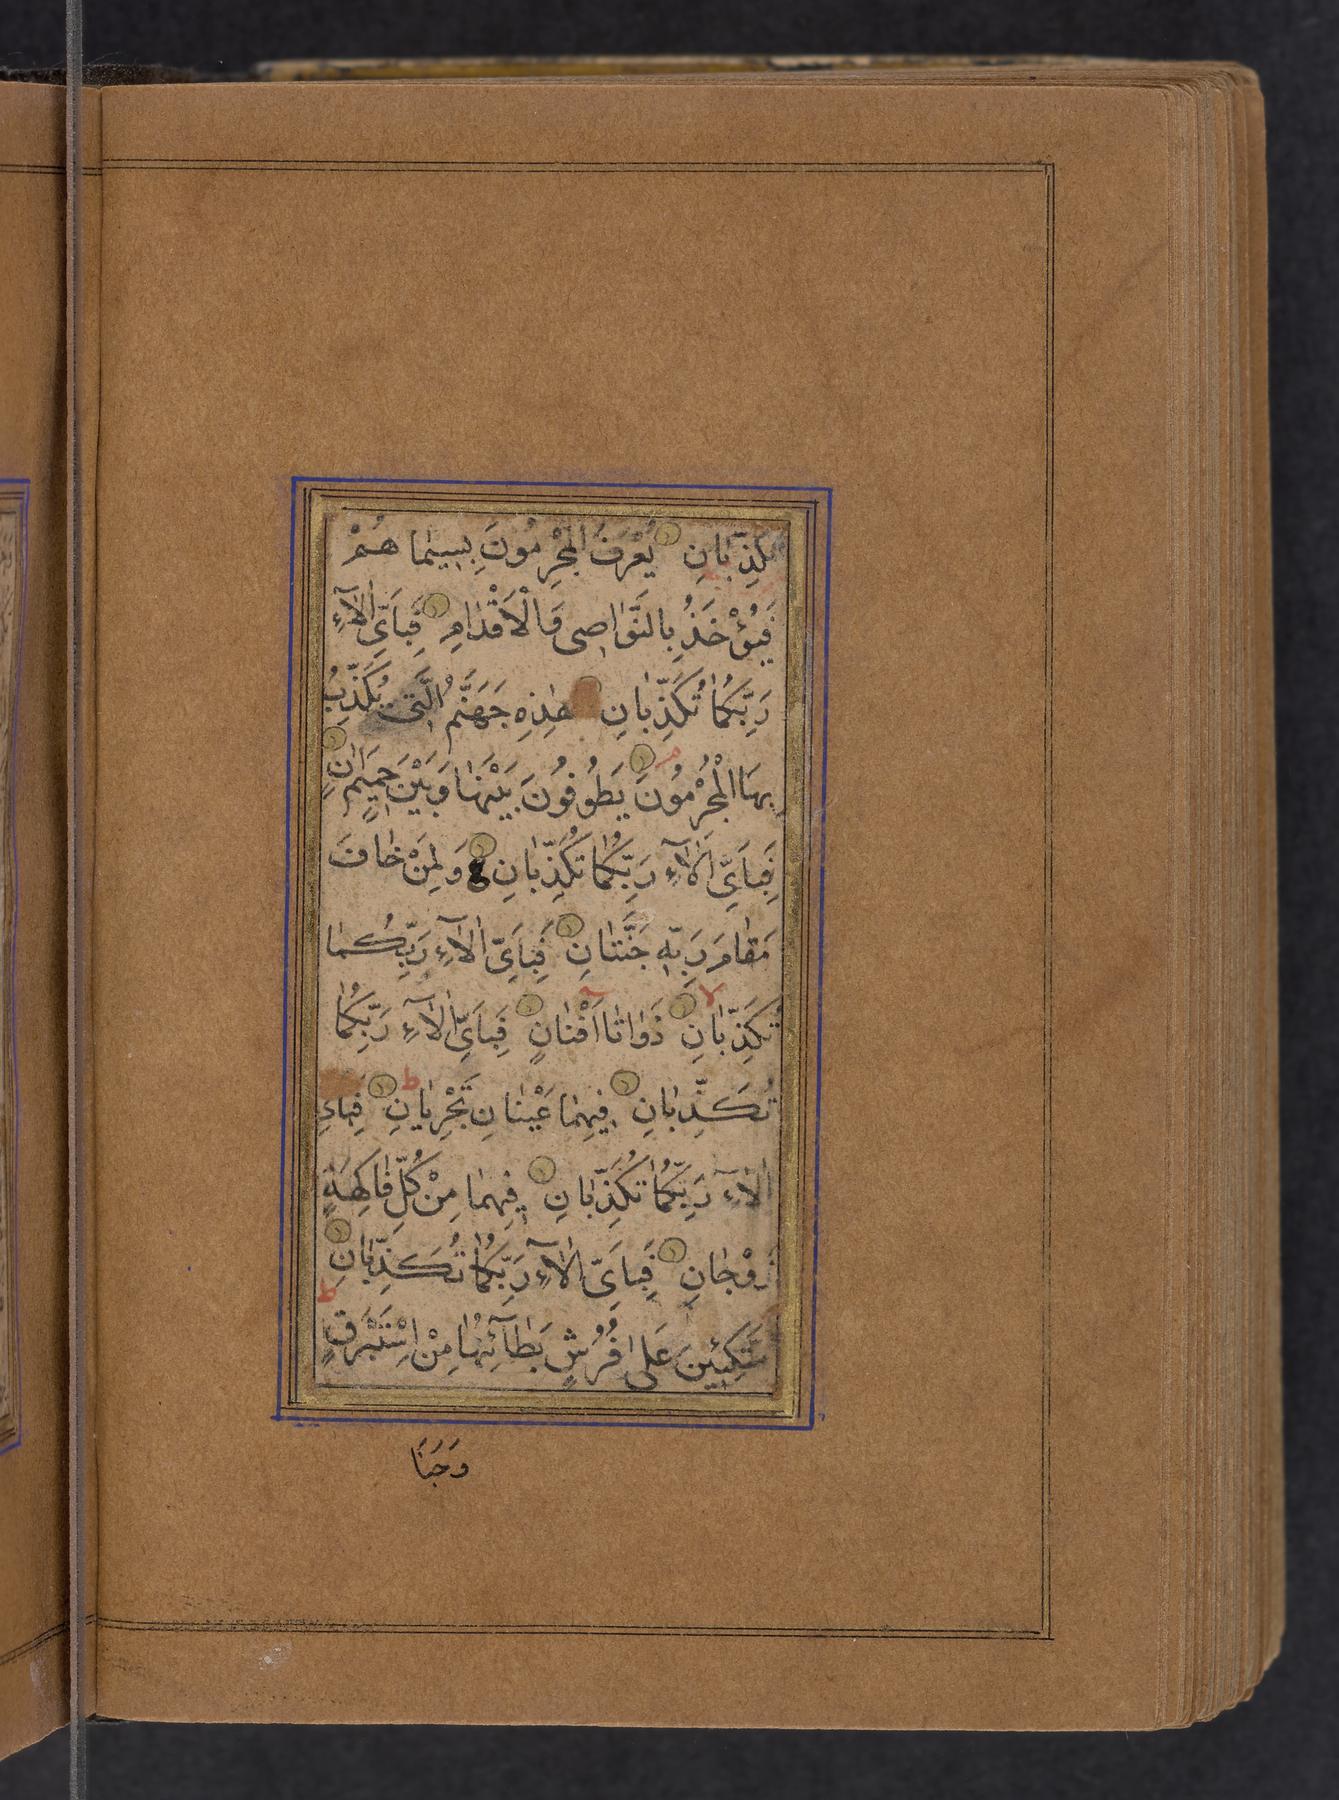 تُكَذِّبَانِ يُعْرَفُ الْمُجْرِمُونَ بِسِيمٰاهُمْ
فَيُؤْخَذُ بِالنَّوٰاصِى وَالْاَقْدٰامِ فَبِاَىِّ اٰلَاۤءِ
رَبِّكُمٰا تُكَذِّبٰانِ هٰذِهِ جَهَنَّمُ الَّتِى يُكَذِّبُ
بِهَا الْمُجْرِمُونَ يَطُوفُونَ بَيْنَهٰا وَبَيْنَ حَمِيمٍ اٰنٍ
فَبِاَىِّ اٰلَاۤءِ رَبِّكُمٰا تُكَذِّبٰانِ وَلِمَنْ خٰافَ
مَقٰامَ رَبِّهِ جَنَّتٰانِ فَبِاَىِّ اٰلَاۤءِ رَبِّكُمٰا
تُكَذِّبٰانِ ذَوٰاتٰا اَفْنٰانٍ فَبِاَىِّ اٰلَاۤءِ رَبِّكُمٰا
تُكَذِّبٰانِ فِيهِمٰا عَيْنٰانِ تَجْرِيٰانِ فَبِاَىِّ
اٰلَاۤءِ رَبِّكُمٰا تُكَذِّبٰانِ فِيهِمٰا مِنْ كُلِّ فٰاكِهَةٍ
زَوْجٰانِ فَبِاَىِّ اٰلَاۤءِ رَبِّكُمٰا تُكَذِّبٰانِ
مُتَّكِـِٔينَ عَلٰى فُرُشٍ بَطٰاۤئِنُهٰا مِنْ اِسْتَبْرَقٍ
وَجَنَا